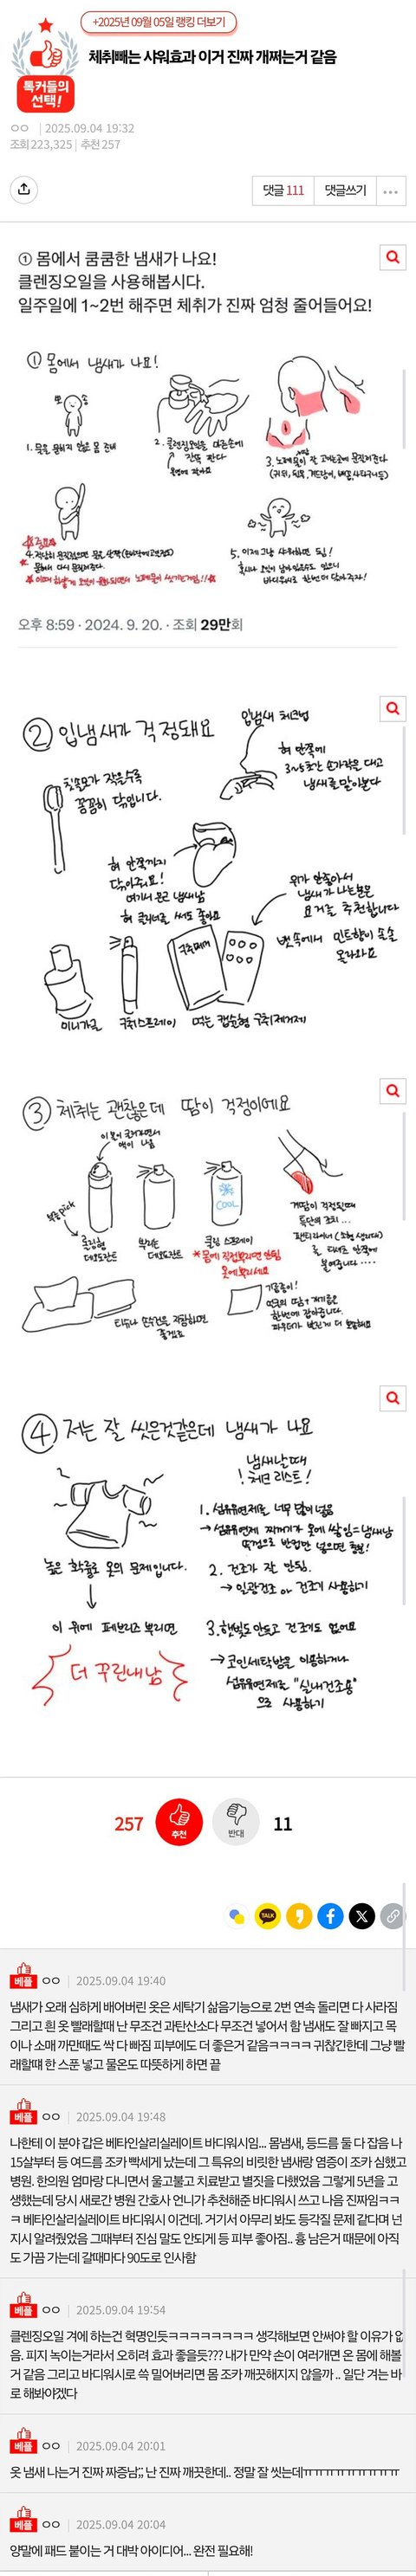 +2025년 09월 05일 랭킹 더보기
톡커들의
선택!
체취빼는 샤워효과 이거 진짜 개쩌는거 같음
ㅇㅇ | 2025.09.04 19:32
조회 223,325 | 추천 257
댓글 111 댓글쓰기 ...
① 몸에서 쿰쿰한 냄새가 나요!
클렌징오일을 사용해봅시다.
일주일에 1~2번 해주면 체취가 진짜 엄청 줄어들어요!
① 몸에서 냄새가 나요!
뽀송
1. 묻히지 않은 몸 준비
2. 클렌징오일을 마른손에
듬뿍 짠다
3. 노폐물이 잘 문질러준다
★중요★
5. 이제 그냥 샤워하면 됨!
혹시나 오일이 남아있을수도 있으니
바디워시로 한번더 닦아주자!
오후 8:59 · 2024. 9. 20. · 조회 29만회
② 입냄새가 걱정돼요
입냄새 체크법
혀 안쪽에
3~5초간 손가락을 대고
냄새를 맡아본다
칫솔모가 작을수록
꼼꼼히 닦입니다.
혀 안쪽까지
닦아주세요!
여기서 냄새남
혀 클리너를 써도 좋아요
위가 안좋아서
냄새가 나는분은
요거를 추천합니다
뱃속에서 민트향이 솔솔
올라와요
구취제거
미니가글 구취스프레이 먹는 캡슐형 구취제거제
③ 체취는 괜찮은데 땀이 걱정이에요
이 볼이 굴러가면서
액이 나옴
본인pick
롤링형
데오도란트
뿌리는
데오도란트
COOL
쿨링 스프레이
*몸에 직접뿌리면 안됨
옷에뿌리세요
겨땀이 걱정될때
특단의 조치...
팬티라이너 (소형 생리대)
를 티셔츠 안쪽에
붙여줍니다....
티슈나 손수건을 지참하면
좋겠죠
기름종이!
한번에 잡아줍니다.
파우더가 발린게 더 뽀송해요
④ 저는 잘 씻은것같은데 냄새가 나요
냄새날때
! 체크 리스트!
1. 섬유유연제를 너무 많이넣음
→ 섬유유연제 찌꺼기가 옷에 쌓임=냄새남
뚜껑으로 반컵만 넣으면 충분!
2. 건조가 잘 안됨.
→ 일광건조 or 건조기 사용하기
3. 햇빛도안들고 건조기도 없어요
→ 코인세탁방을 이용하거나
섬유유연제를 "실내건조용"
으로 사용하기
높은 확률로 옷의 문제입니다.
이 위에 페브리즈 뿌리면
더 꾸린내남
257 추천 반대 11
TALK
베플 ㅇㅇ | 2025.09.04 19:40
냄새가 오래 심하게 배어버린 옷은 세탁기 삶음기능으로 2번 연속 돌리면 다 사라짐
그리고 흰 옷 빨래할때 난 무조건 과탄산소다 무조건 넣어서 함 냄새도 잘 빠지고 목
이나 소매 까만때도 싹 다 빠짐 피부에도 더 좋은거 같음ㅋㅋㅋㅋ 귀찮긴한데 그냥 빨
래할떄 한 스푼 넣고 물온도 따뜻하게 하면 끝
베플 ㅇㅇ | 2025.09.04 19:48
나한테 이 분야 갑은 베타인살리실레이트 바디워시임... 몸냄새, 등드름 둘 다 잡음 나
15살부터 등 여드름 조카 빡세게 났는데 그 특유의 비릿한 냄새랑 염증이 조카 심했고
병원. 한의원 엄마랑 다니면서 울고불고 치료받고 별짓을 다했었음 그렇게 5년을 고
생했는데 당시 새로간 병원 간호사 언니가 추천해준 바디워시 쓰고 나음 진짜임ㅋㅋ
ㅋ 베타인살리실레이트 바디워시 이건데. 거기서 아무리 봐도 등각질 문제 같다며 넌
지시 알려줬었음 그때부터 진심 말도 안되게 등 피부 좋아짐.. 흉 남은거 때문에 아직
도 가끔 가는데 갈때마다 90도로 인사함
베플 ㅇㅇ | 2025.09.04 19:54
클렌징오일 겨에 하는건 혁명인듯ㅋㅋㅋㅋㅋㅋㅋㅋ 생각해보면 안써야 할 이유가 없
음. 피지 녹이는거라서 오히려 효과 좋을듯??? 내가 만약 손이 여러개면 온 몸에 해볼
거 같음 그리고 바디워시로 쓱 밀어버리면 몸 조카 깨끗해지지 않을까 .. 일단 겨는 바
로 해봐야겠다
베플 ㅇㅇ | 2025.09.04 20:01
옷 냄새 나는거 진짜 짜증남;; 난 진짜 깨끗한데.. 정말 잘 씻는데ㅠㅠㅠㅠㅠㅠㅠㅠㅠ
베플 ㅇㅇ | 2025.09.04 20:04
양말에 패드 붙이는 거 대박 아이디어... 완전 필요해!